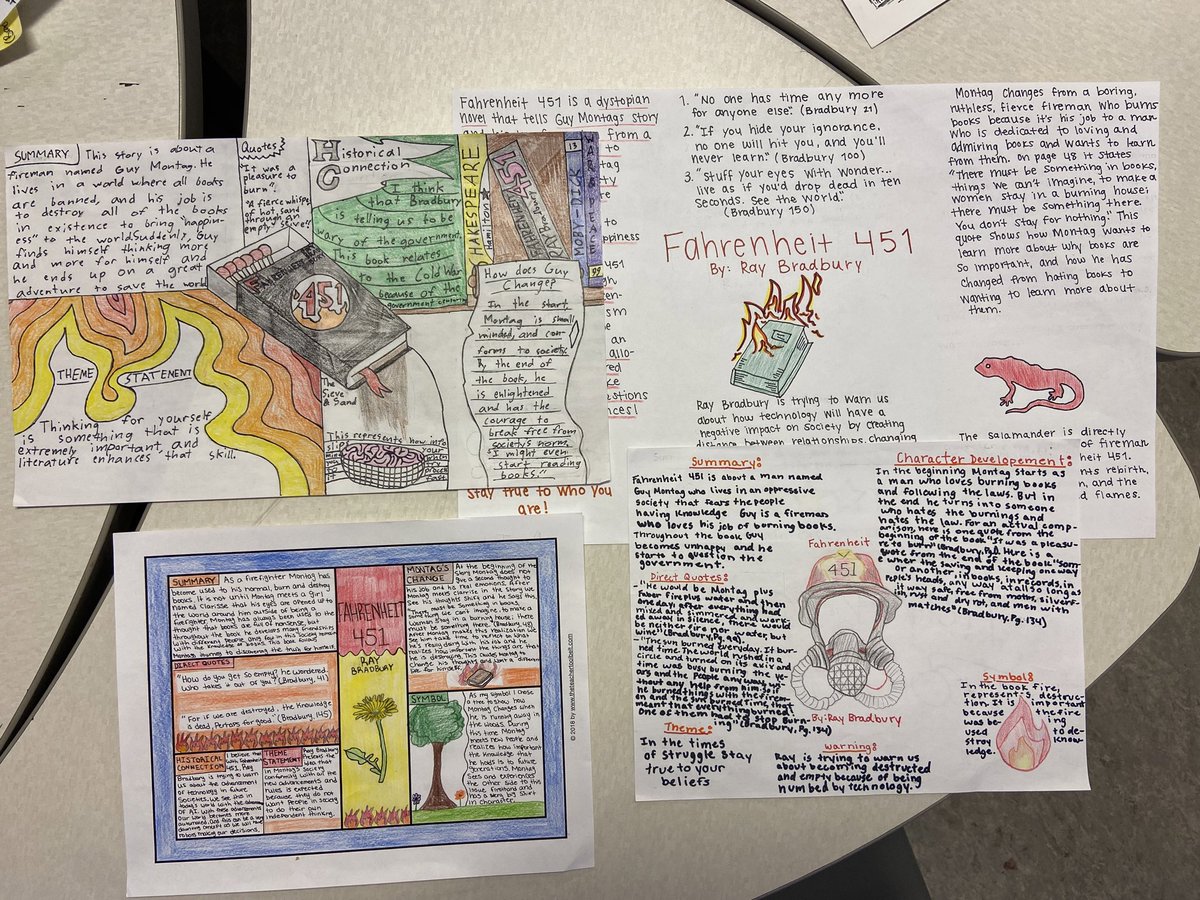 SUMMARY This story is about a
fireman named Guy Montag. He
lives in a world where all books
are banned, and his job is
to destroy all of the books
in existence to bring "happin-
ess" to the world. Suddenly, Guy
finds himself thinking more
and more for himself and
he ends up on a great
adventure to save the world
THEME STATEMENT
Thinking for yourself
is something that is
extremely important, and
literature enhances that skill.
Quotes
"It was a
pleasure to
burn"
"A fierce whisper
of hot sand
through an
empty sieve"
Historical
Connection
I think
that Bradbury
is telling us to be
wary of the government.
This book relates
to the Cold War
because of the
government
451
The
Sieve &
Sand
This represents how
SHAKESPEARE
Hamilton
451
FAHRENHEIT
MOBY-DICK
How does Guy
Change?
In the start,
Montag is small
minded, and con-
forms to society.
By the end of
the book, he
is enlightened
and has the
courage to
break free from
society's norm.
"I might even
start reading
books."
Fahrenheit 451 is a dystopian
novel that tells Guy Montag's story
from a
stay true to who you
are!
1. "No one has time any more
for anyone else." (Bradbury 21)
2. "If you hide your ignorance,
no one will hit you, and you'll
never learn." (Bradbury 100)
3. "Stuff your eyes with wonder...
live as if you'd drop dead in ten
seconds. See the world."
(Bradbury 150)
Fahrenheit 451
By: Ray Bradbury
Ray Bradbury is trying to warn us
about how technology will have a
negative impact on society by creating
distance between relationships, changing
Montag changes from a boring,
ruthless, fierce fireman who burns
books because it's his job to a man
who is dedicated to loving and
admiring books and wants to learn
from them. On page 48 it states
"There must be something in books,
things we can't imagine, to make a
women stay in a burning house;
there must be something there.
You don't stay for nothing." This
quote shows how Montag wants to
learn more about why books are
so important, and how he has
changed from hating books to
wanting to learn more about
them.
The salamander is directly
of fireman
heit 451.
nts rebirth,
n, and the
d flames.
SUMMARY As a firefighter Montag has
become used to his normal, burn and destroy
books. It is not until Montag meets a girl
named Clarisse that his eyes are opened up to
the world around him outside of being a
firefighter. Montag has always been used to the
thought that books are full of nonsense, but
throughout the book he develops many friendships
with different people
DIRECT QUOTES
"How do you get so empty? he wondered
who takes it out of you?" (Bradbury, 41)
"For if we are destroyed, the knowledge
is dead, perhaps for good." (Bradbury 145)
HISTORICAL
CONNECTION
I believe that
451, Ray
Bradbury is trying to warn
us about the advancement
of technology in future
societies. We see this in
today's world with the advances
of AI. With these advancements
our world becomes more
automated. And this can be a very
daunting concept as we will have
robots making our decisions.
THEME
STATEMENT
Ray Bradbury
presents the idea
that
in Montag's society
conforming with all the
new advancements and
rules is expected
because they do not
want people in society
to do their own
independent thinking.
FAHRENHEIT
451
RAY
BRADBURY
MONTAG'S
CHANGE
At the beginning of the
story Montag does not
give a second thought to
his job and his real emotions. After
Montag meets Clarisse in the story we
see his thoughts shift and he says this,
"There must be something in books,
something we can't imagine, to make a
woman stay in a burning house; there
must be something there." (Bradbury, 48)
After Montag makes this realization we
see him take time to reflect on what
he's really doing with his job and he
realizes how important the things are that
he is destroying.
SYMBOL
As my symbol I chose
a tree to show how
Montag changes when
he is running away in
the woods. During
this time Montag
meets new people and
realizes how important
the knowledge that
he holds is to future
generations. Montag
sees and experiences
the other side to this
issue firsthand and
has a very big shift
in character.
© 2018 by www.theteachertoolbelt.com
Summary:
Fahrenheit 451 is about a man named
Guy Montag who lives in an oppressive
society that fears the people
having knowledge. Guy is a fireman
who loves his job of burning books.
Throughout the book Guy
becomes unhappy and he
start to question the
government.
Direct Quotes:
"He would be Montag plus
Faber fire plus water and then
one day, after everything had
mixed and simmered and work-
ed away in silence, there would
be neither fire nor water, but
wine" (Bradbury, Pg. 99)
"The sun burned everyday. It bur-
ned time. The world rushed in a
circle and turned on its axis and
time was busy burning the ye-
ars and the people anyway, wi-
thout any help from him. So if
he burned things with the firem-
en and the sun burned time, that
meant that everything burned!
One of them had to stop burn-
(Bradbury, Pg. 134)
Theme:
In the times
of struggle stay
true to your
beliefs
Fahrenheit
451
By: Ray Bradbury
warning:
Ray is trying to warn us
about becoming destructed
and empty because of being
numbed by technology.
Character Developement:
In the beginning Montag starts as
a man who loves burning books
and following the laws. But in
the end he turns into someone
who hates the burnings and
hates the law. For an actual comp-
arison, here is one quote from the
beginning of the book "It was a pleasu-
re to burn" (Bradbury, Pg. 1). Here is a
quote from the end of the book: "Som-
ewhere the saving and keeping one way
or another, in books, in records, in
people's heads, any way at all so long as
they were safe, free from moths, silverf-
ish, rust and dry rot, and men with
matches" (Bradbury, Pg. 134)
Symbol:
In the book fire,
represents destruc-
tion. It is important
because the fire
was being
used to de-
stroy know-
ledge.